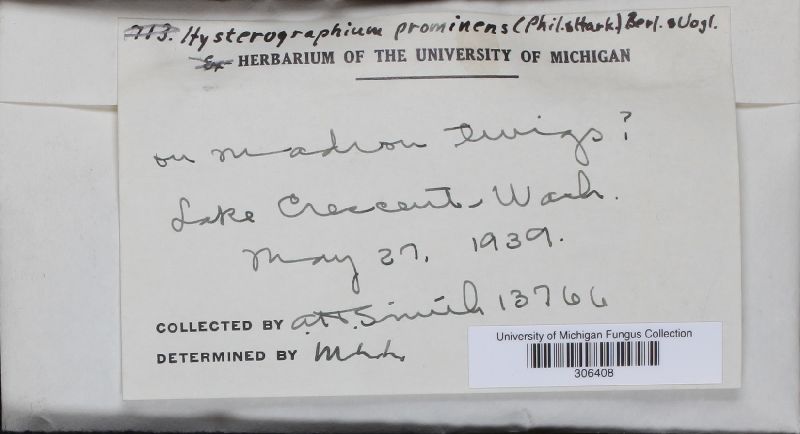 713. Hysterographium prominens (Phil. & Hark.) Berl. & Vogl.
Ex HERBARIUM OF THE UNIVERSITY OF MICHIGAN
on Madron twigs?
Lake Crescent, Wash.
May 27, 1939.
COLLECTED BY A.H. Smith 13766
DETERMINED BY
University of Michigan Fungus Collection
306408